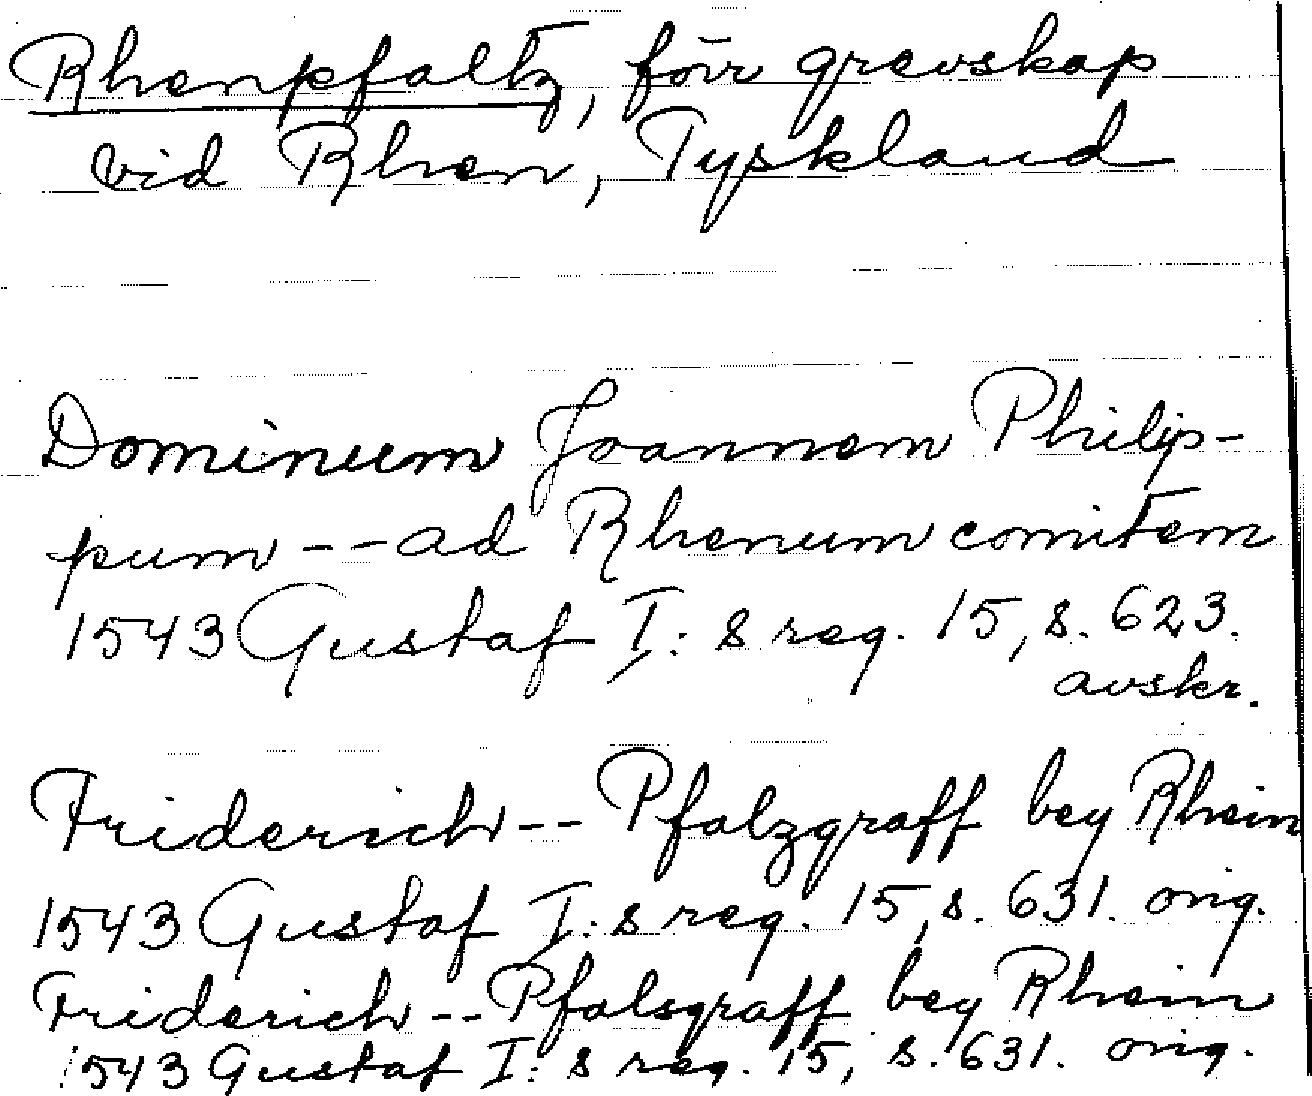 Rhenpfaltz, förr grevskap
vid Rhen, Tyskland
Dominum Joannem Philip-
pum -- ad Rhenum comitem
1543 Gustaf I: s reg. 15, s. 623.
avskr.
Friderich -- Pfalzgraff bey Rhein
1543 Gustaf I: s reg. 15, s. 631. orig.
Friderich -- Pfalsgraff bey Rhein
1543 Gustaf I: s reg. 15, s. 631. orig.